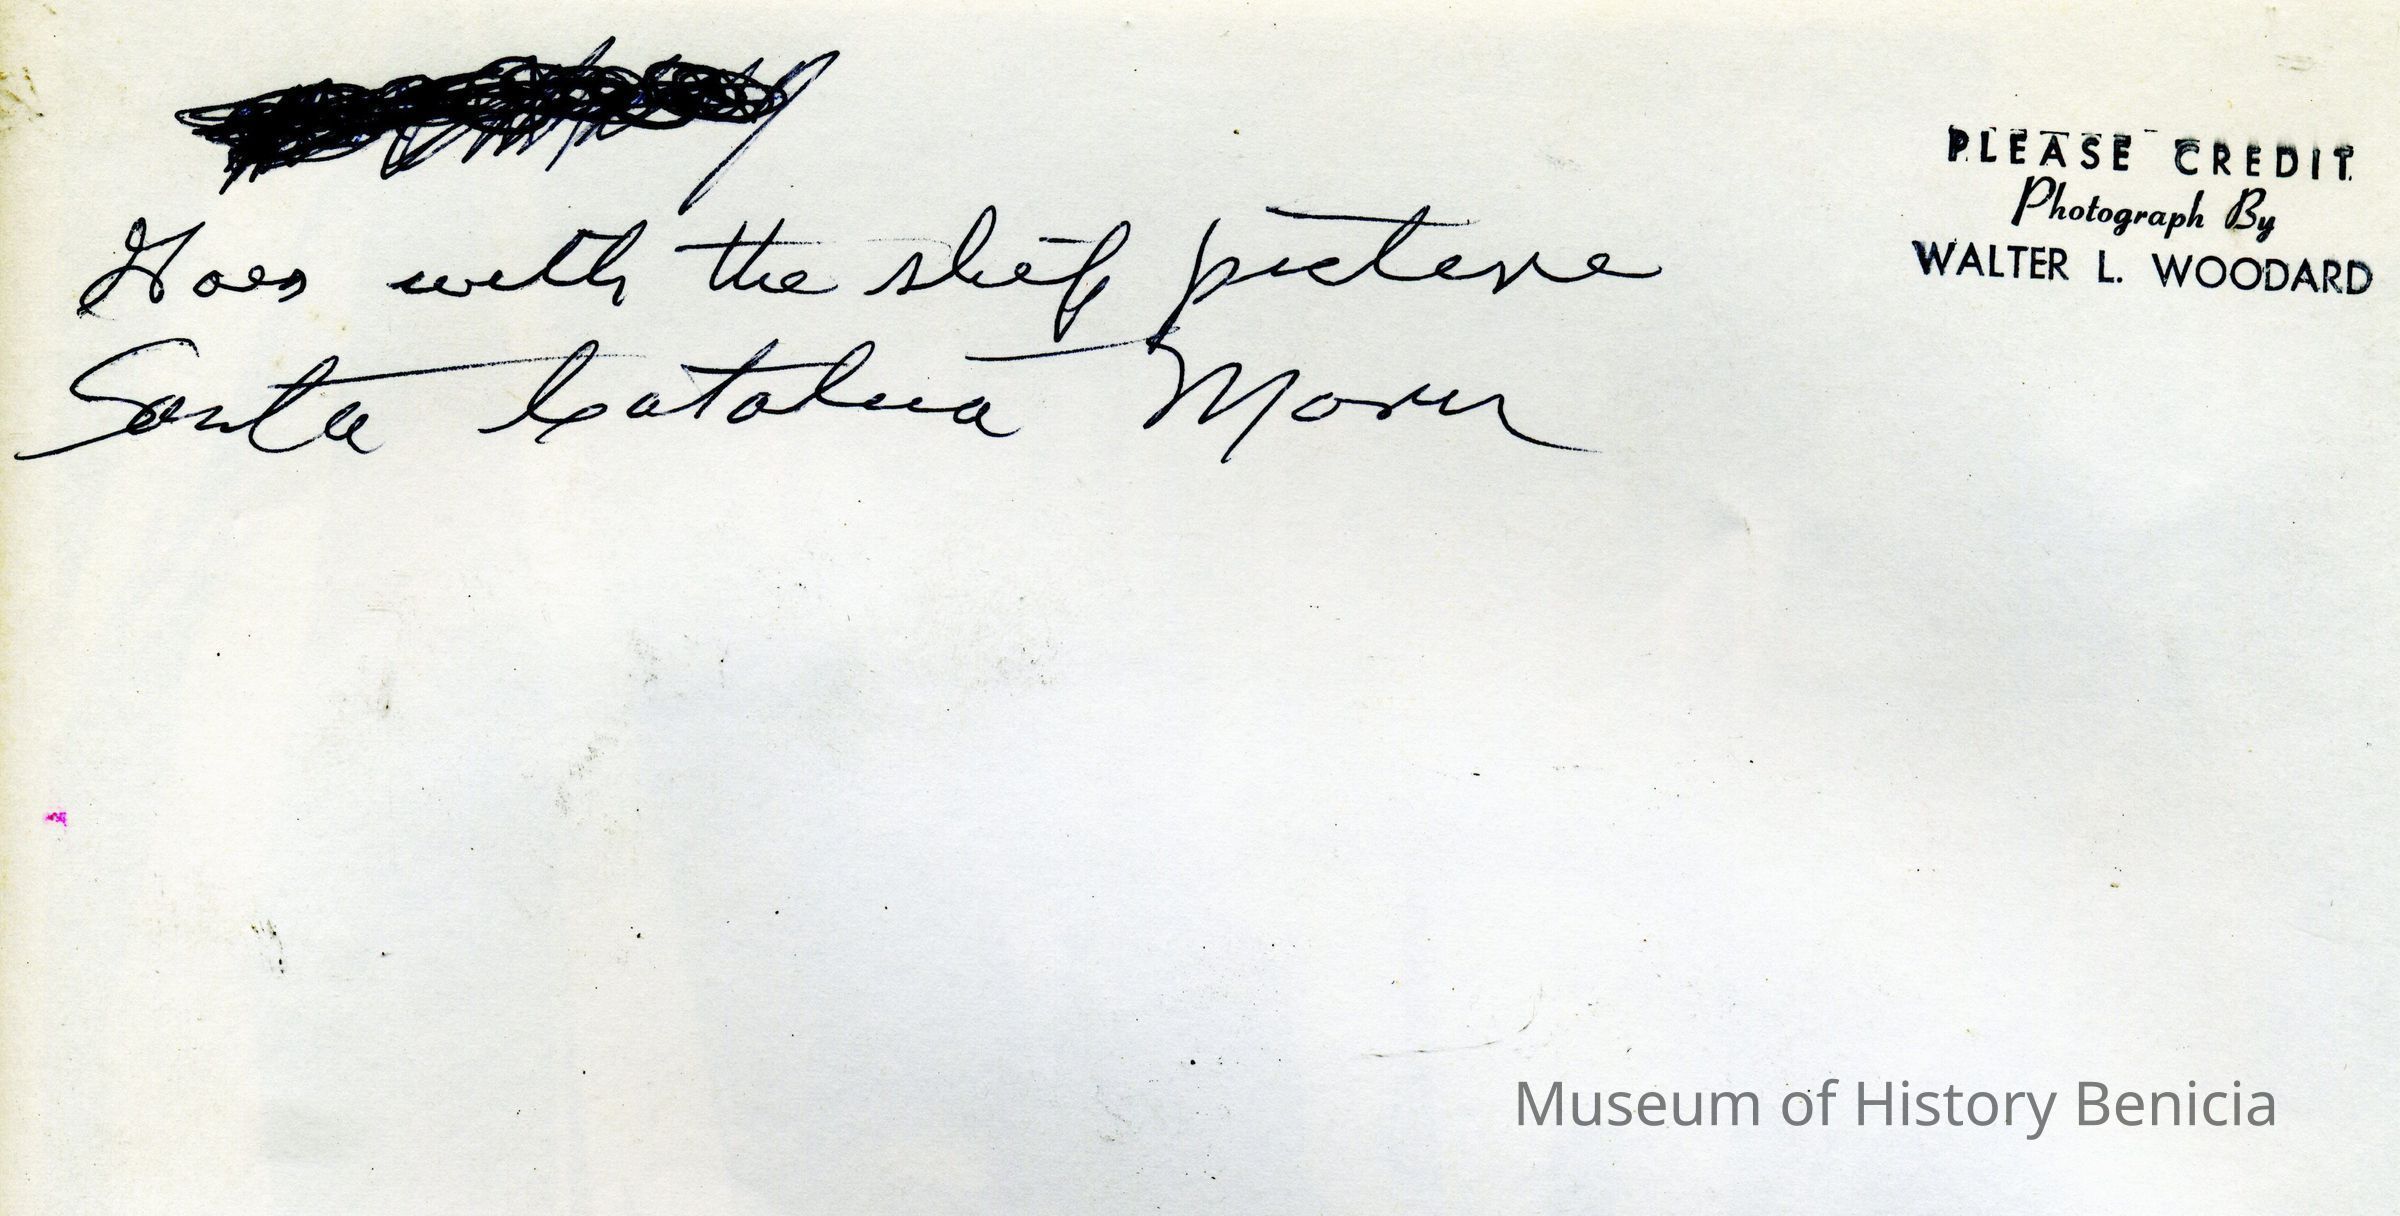 Goes with the ship picture
Santa Catalina
PLEASE CREDIT
Photograph By
WALTER L. WOODARD
Museum of History Benicia